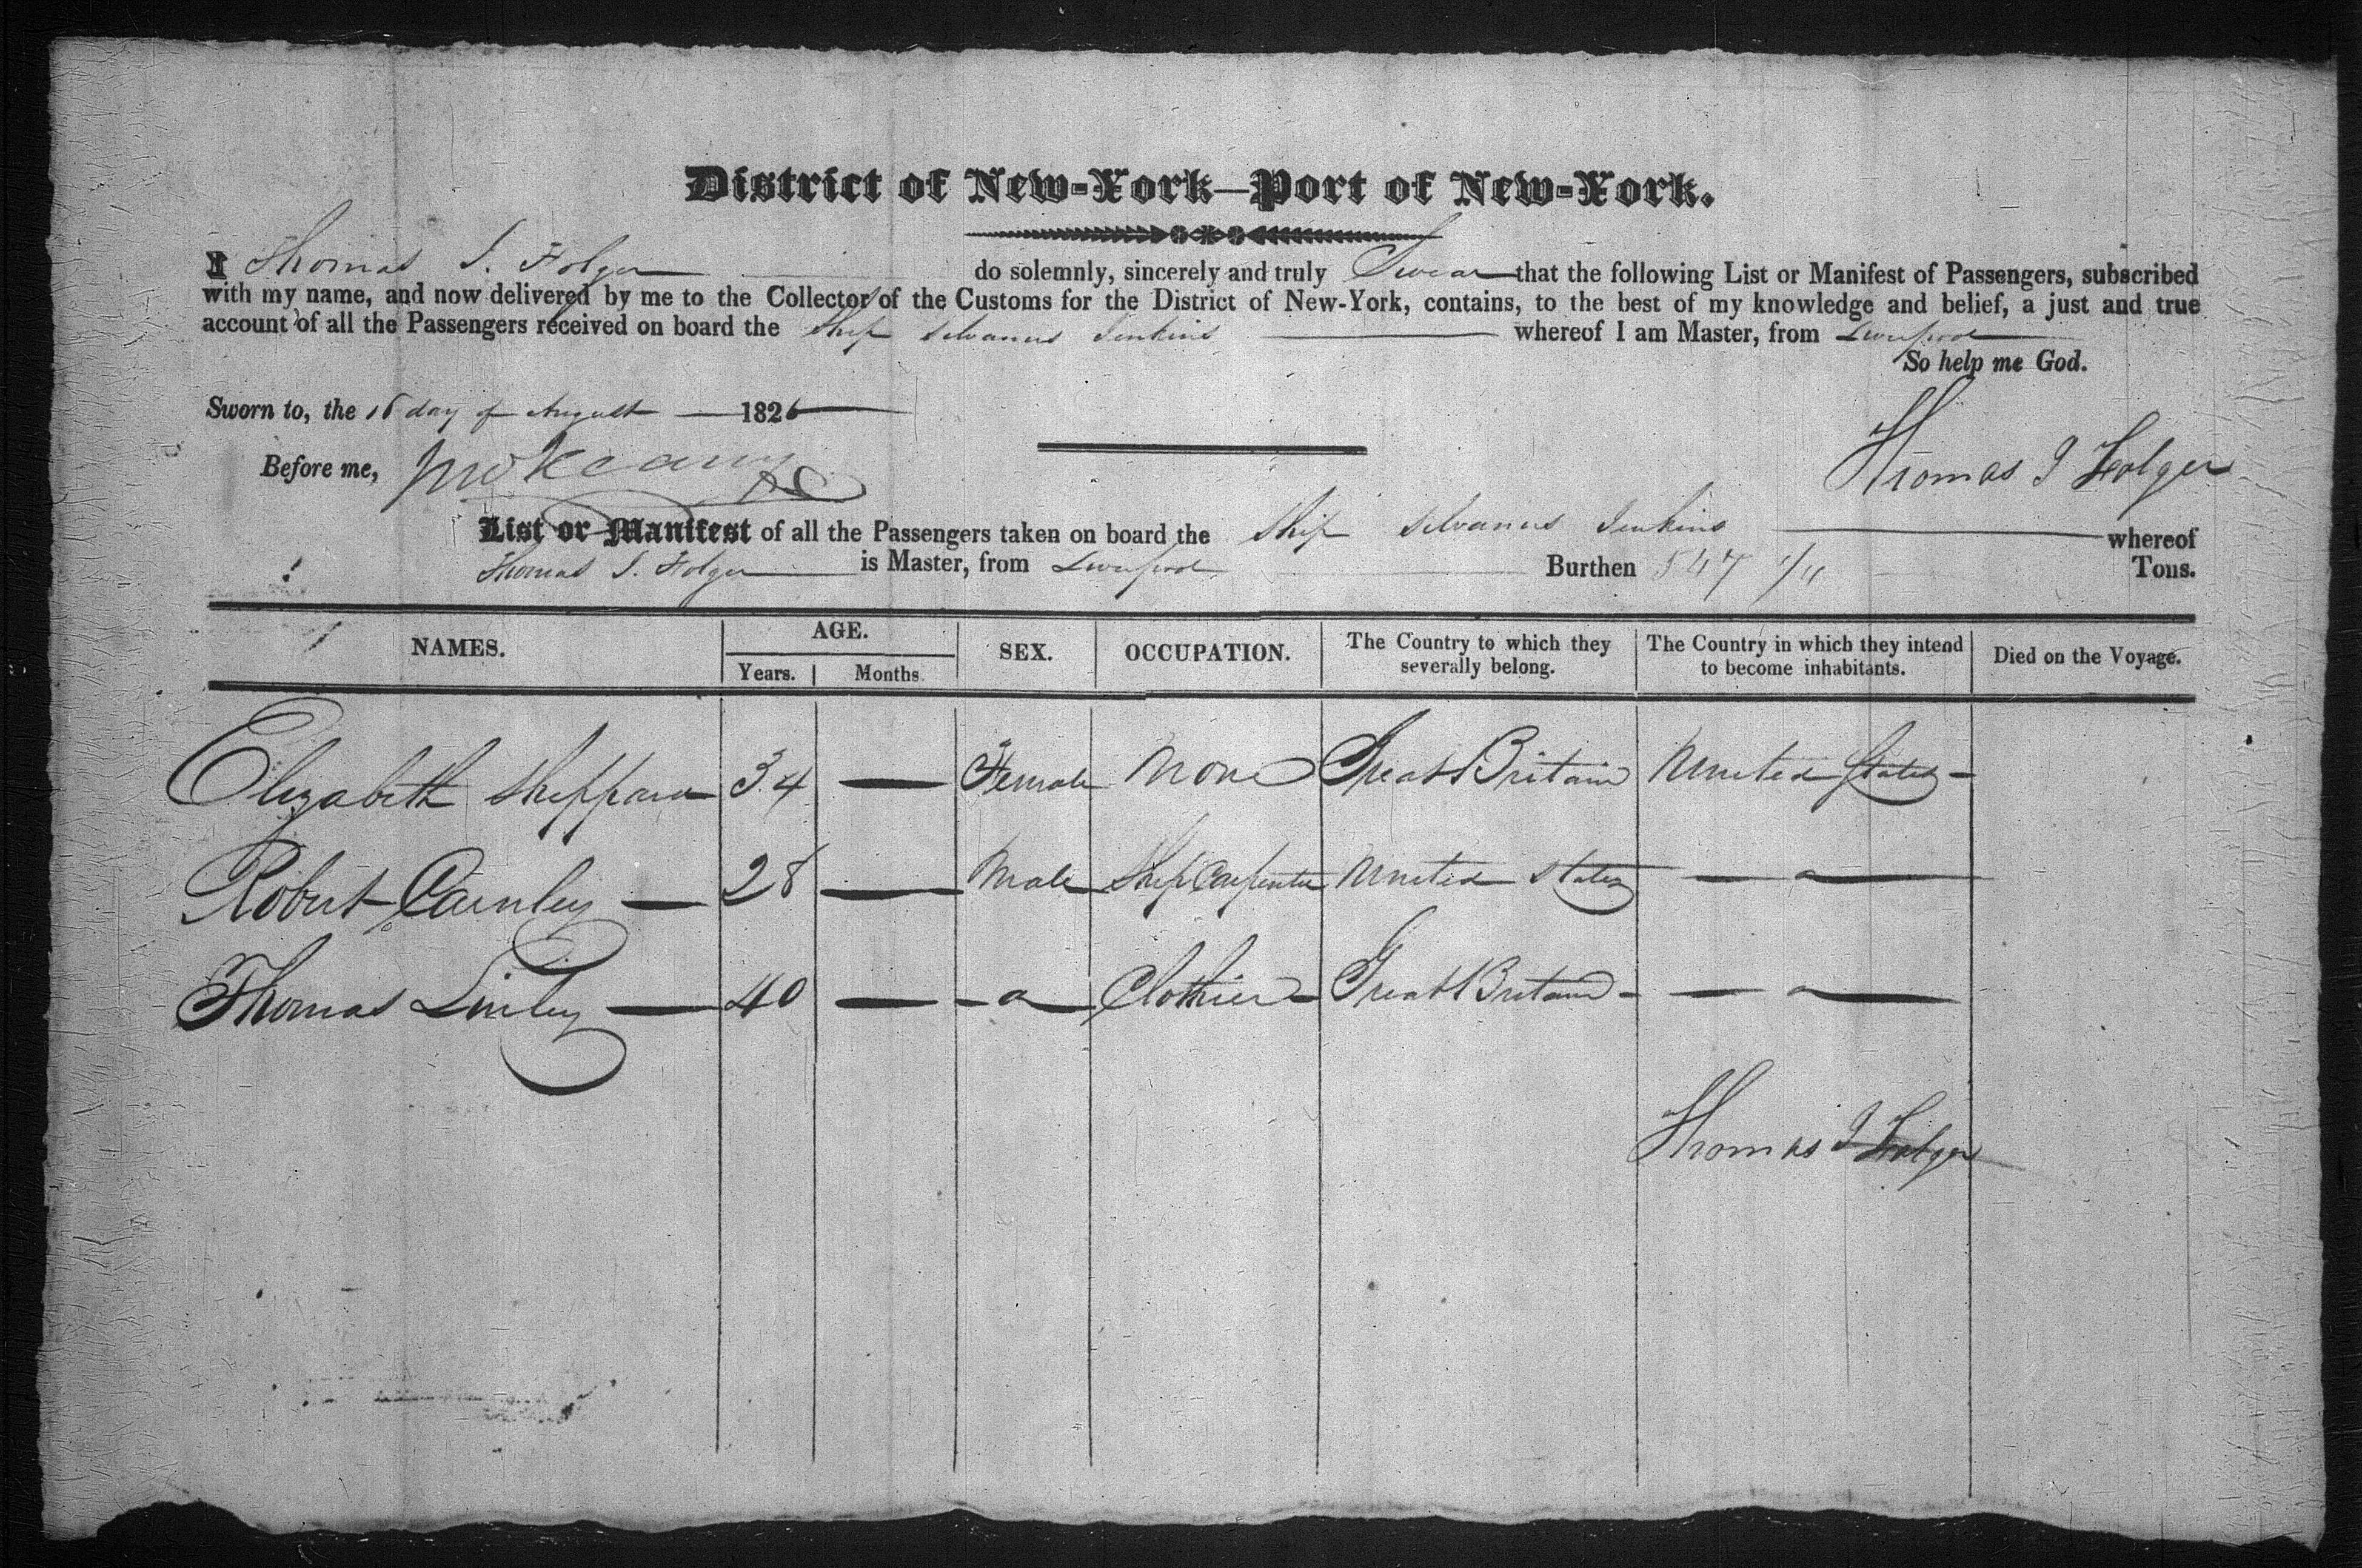 District of New-York—Port of New-York.
I Thomas J. Folger do solemnly, sincerely and truly Swear that the following List or Manifest of Passengers, subscribed
with my name, and now delivered by me to the Collector of the Customs for the District of New-York, contains, to the best of my knowledge and belief, a just and true
account of all the Passengers received on board the Ship Silvanus Jenkins whereof I am Master, from Liverpool
So help me God.
Sworn to, the 16 day of August 1826
Before me,
Thomas J Folger
List or Manifest of all the Passengers taken on board the Ship Silvanus Jenkins whereof
Thomas J. Folger is Master, from Liverpool Burthen 547 Tons.
NAMES. AGE. SEX. OCCUPATION. The Country to which they severally belong. The Country in which they intend to become inhabitants. Died on the Voyage.
Years. Months
Elizabeth Sheppard 34 — Female None Great Britain United States -
Robert Carnley — 28 — Male Ship Carpenter United States — " —
Thomas Linley — 40 — - " — Clothier - Great Britain - — " —
Thomas J Folger